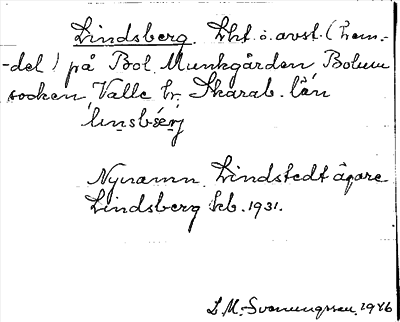 Lindsberg. Lht. o. avst. (hem-
-del) på Bol. Munkgården Bolum
socken, Valle hr. Skarab. län
linsbærj
Nynamn. Lindstedt ägare
Lindsberg kb. 1931.
L. M. Svenungsson. 1946